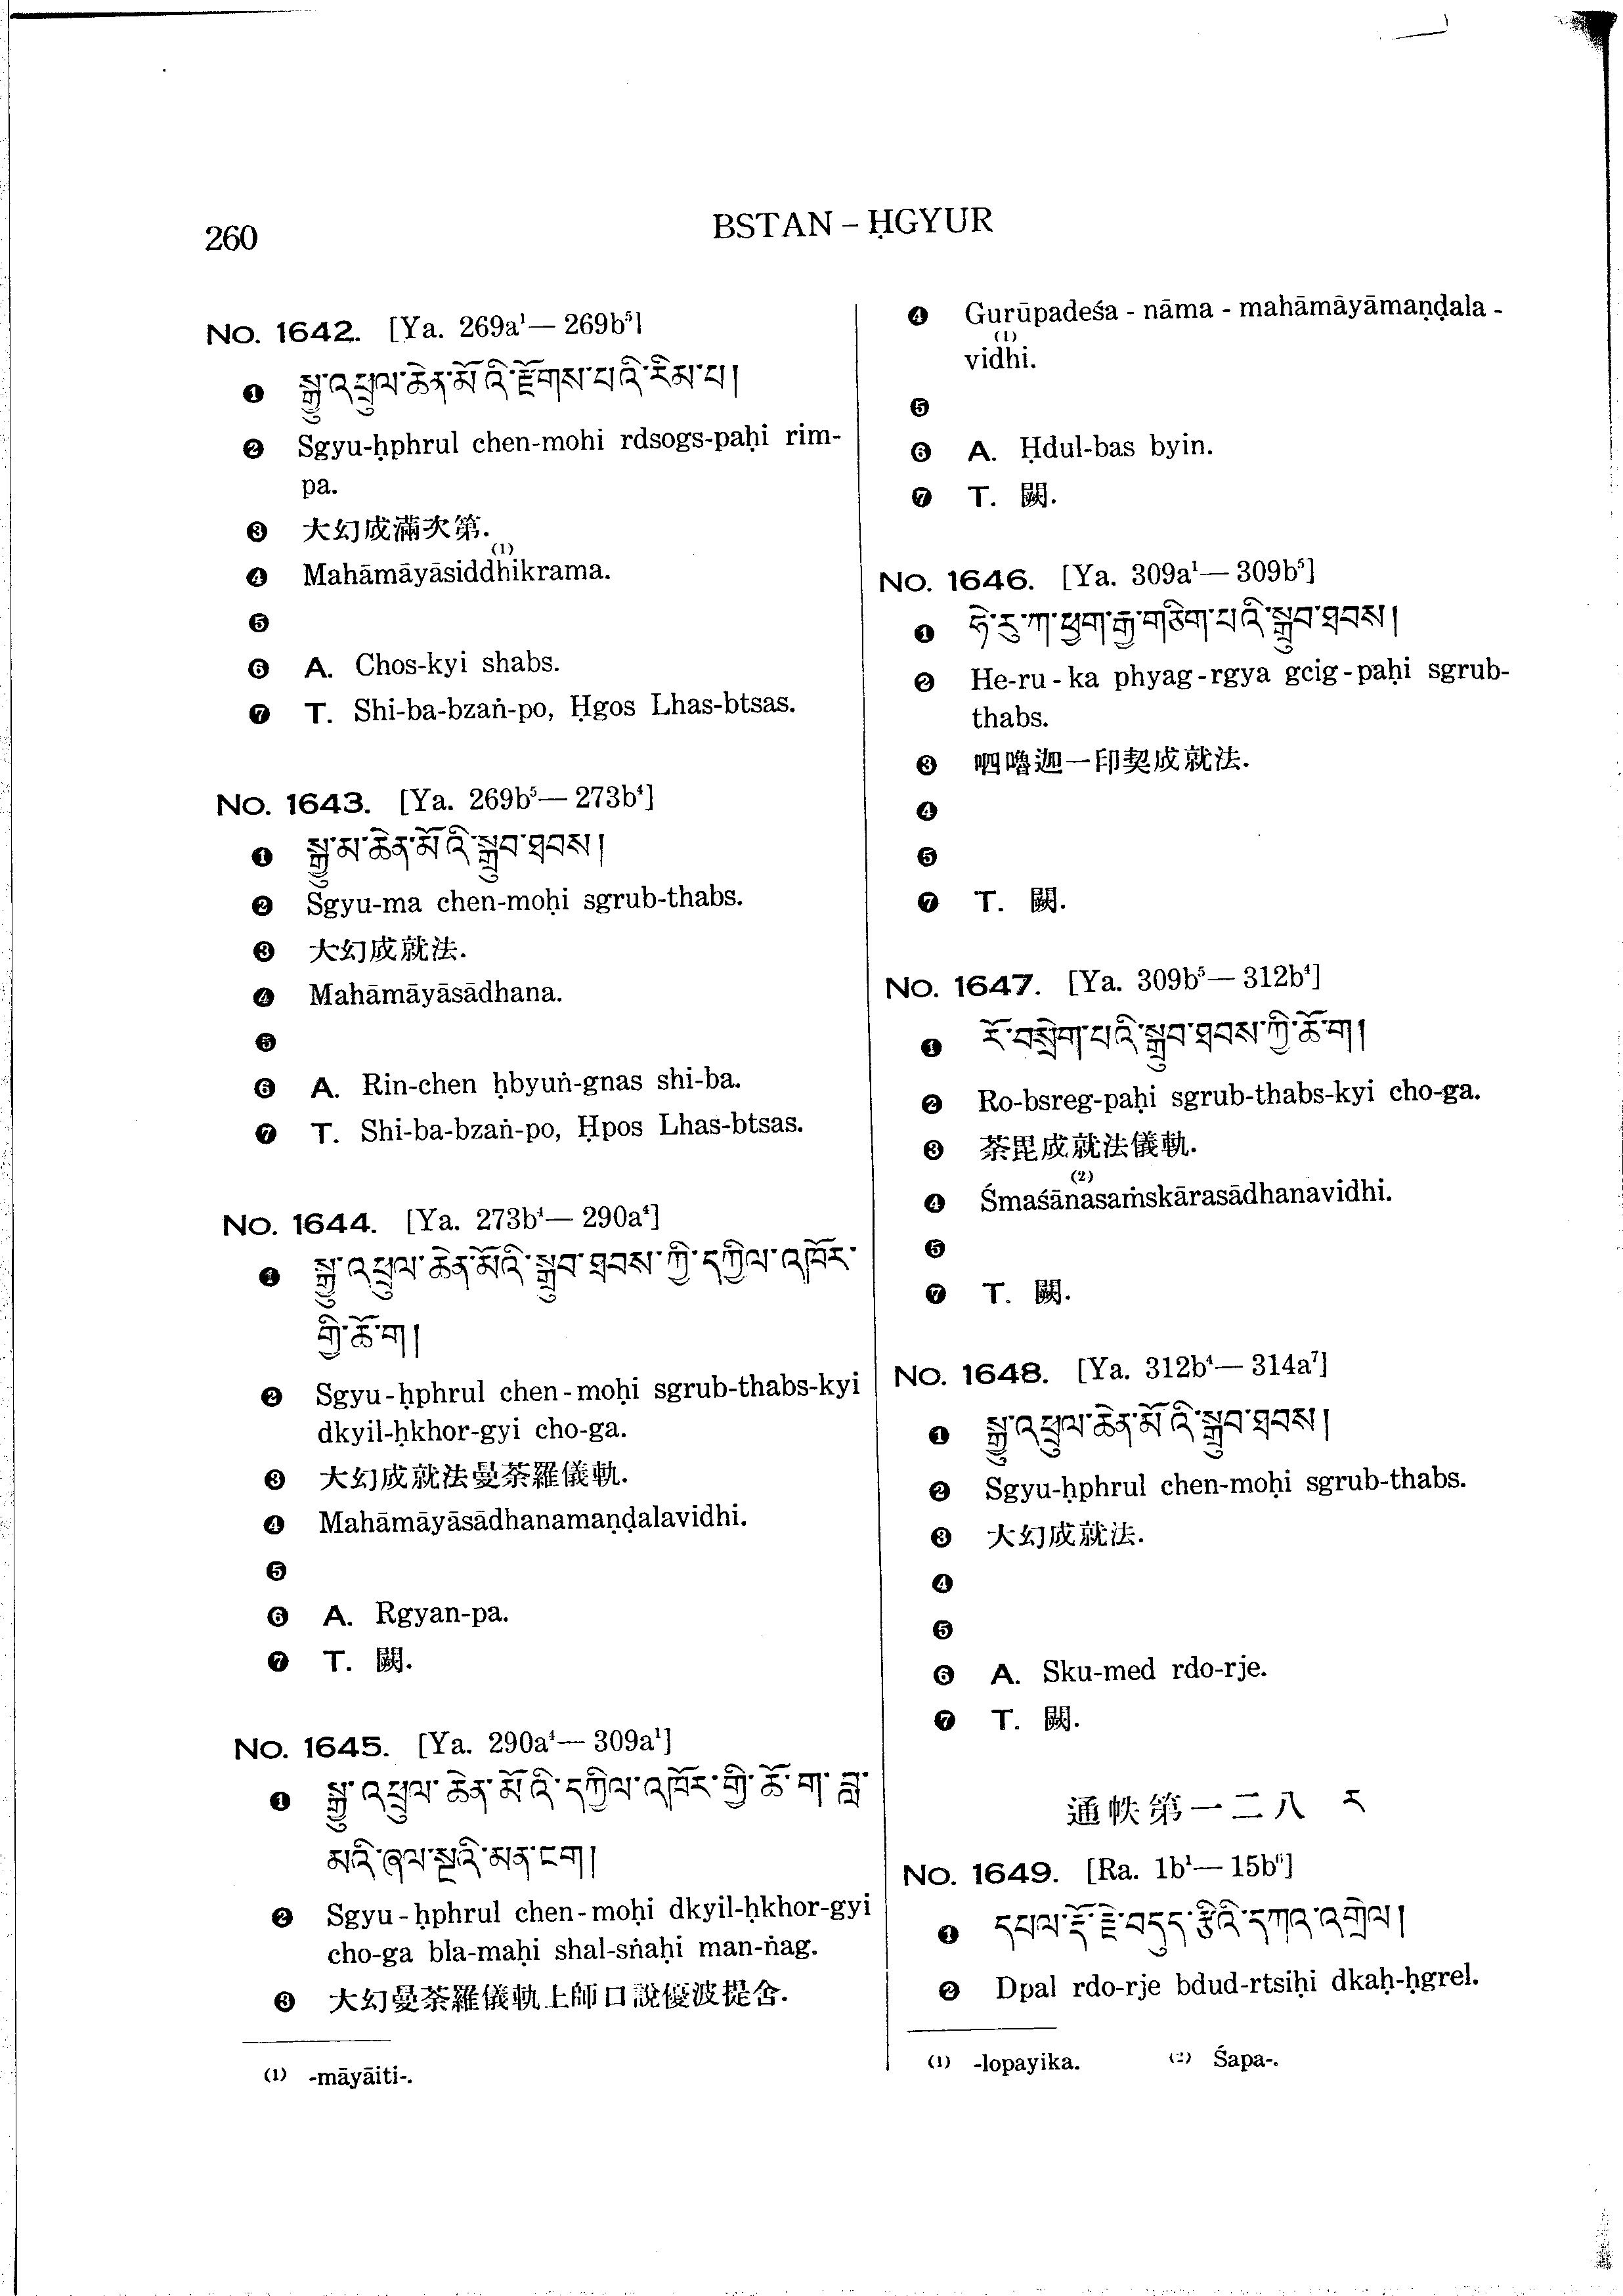 260
BSTAN – ḤGYUR
No. 1642. [Ya. 269a¹— 269b⁵]
❶ སྒྱུ་འཕྲུལ་ཆེན་མོའི་རྫོགས་པའི་རིམ་པ།
❷ Sgyu-ḥphrul chen-mohi rdsogs-paḥi rim-
pa.
❸ 大幻成滿次第.
(1)
❹ Mahāmāyāsiddhikrama.
❺
❻ A. Chos-kyi shabs.
❼ T. Shi-ba-bzaṅ-po, Ḥgos Lhas-btsas.
No. 1643. [Ya. 269b⁵— 273b⁴]
❶ སྒྱུ་མ་ཆེན་མོའི་སྒྲུབ་ཐབས།
❷ Sgyu-ma chen-moḥi sgrub-thabs.
❸ 大幻成就法.
❹ Mahāmāyāsādhana.
❺
❻ A. Rin-chen ḥbyuṅ-gnas shi-ba.
❼ T. Shi-ba-bzaṅ-po, Ḥpos Lhas-btsas.
No. 1644. [Ya. 273b⁴— 290a⁴]
❶ སྒྱུ་འཕྲུལ་ཆེན་མོའི་སྒྲུབ་ཐབས་ཀྱི་དཀྱིལ་འཁོར་
གྱི་ཆོ་ག།
❷ Sgyu-ḥphrul chen-moḥi sgrub-thabs-kyi
dkyil-ḥkhor-gyi cho-ga.
❸ 大幻成就法曼荼羅儀軌.
❹ Mahāmāyāsādhanamaṇḍalavidhi.
❺
❻ A. Rgyan-pa.
❼ T. 闕.
No. 1645. [Ya. 290a⁴— 309a¹]
❶ སྒྱུ་འཕྲུལ་ཆེན་མོའི་དཀྱིལ་འཁོར་གྱི་ཆོ་ག་བླ་
མའི་ཞལ་སྔའི་མན་ངག།
❷ Sgyu-ḥphrul chen-moḥi dkyil-ḥkhor-gyi
cho-ga bla-maḥi shal-sṅaḥi man-ṅag.
❸ 大幻曼荼羅儀軌上師口說優波提舍.
(1) -māyāiti-.
❹ Gurūpadeśa - nāma - mahāmāyāmaṇḍala -
(1)
vidhi.
❺
❻ A. Ḥdul-bas byin.
❼ T. 闕.
No. 1646. [Ya. 309a¹— 309b⁵]
❶ ཧེ་རུ་ཀ་ཕྱག་རྒྱ་གཅིག་པའི་སྒྲུབ་ཐབས།
❷ He-ru-ka phyag-rgya gcig-paḥi sgrub-
thabs.
❸ 呬嚕迦一印契成就法.
❹
❺
❼ T. 闕.
No. 1647. [Ya. 309b⁵— 312b⁴]
❶ རོ་བསྲེག་པའི་སྒྲུབ་ཐབས་ཀྱི་ཆོ་ག།
❷ Ro-bsreg-paḥi sgrub-thabs-kyi cho-ga.
❸ 荼毘成就法儀軌.
(2)
❹ Śmaśānasaṁskārasādhanavidhi.
❺
❼ T. 闕.
No. 1648. [Ya. 312b⁴— 314a⁷]
❶ སྒྱུ་འཕྲུལ་ཆེན་མོའི་སྒྲུབ་ཐབས།
❷ Sgyu-ḥphrul chen-moḥi sgrub-thabs.
❸ 大幻成就法.
❹
❺
❻ A. Sku-med rdo-rje.
❼ T. 闕.
通帙第一二八 ར
No. 1649. [Ra. 1b¹— 15b⁶]
❶ དཔལ་རྡོ་རྗེ་བདུད་རྩིའི་དཀའ་འགྲེལ།
❷ Dpal rdo-rje bdud-rtsiḥi dkaḥ-ḥgrel.
(1) -lopayika. (2) Śapa-.